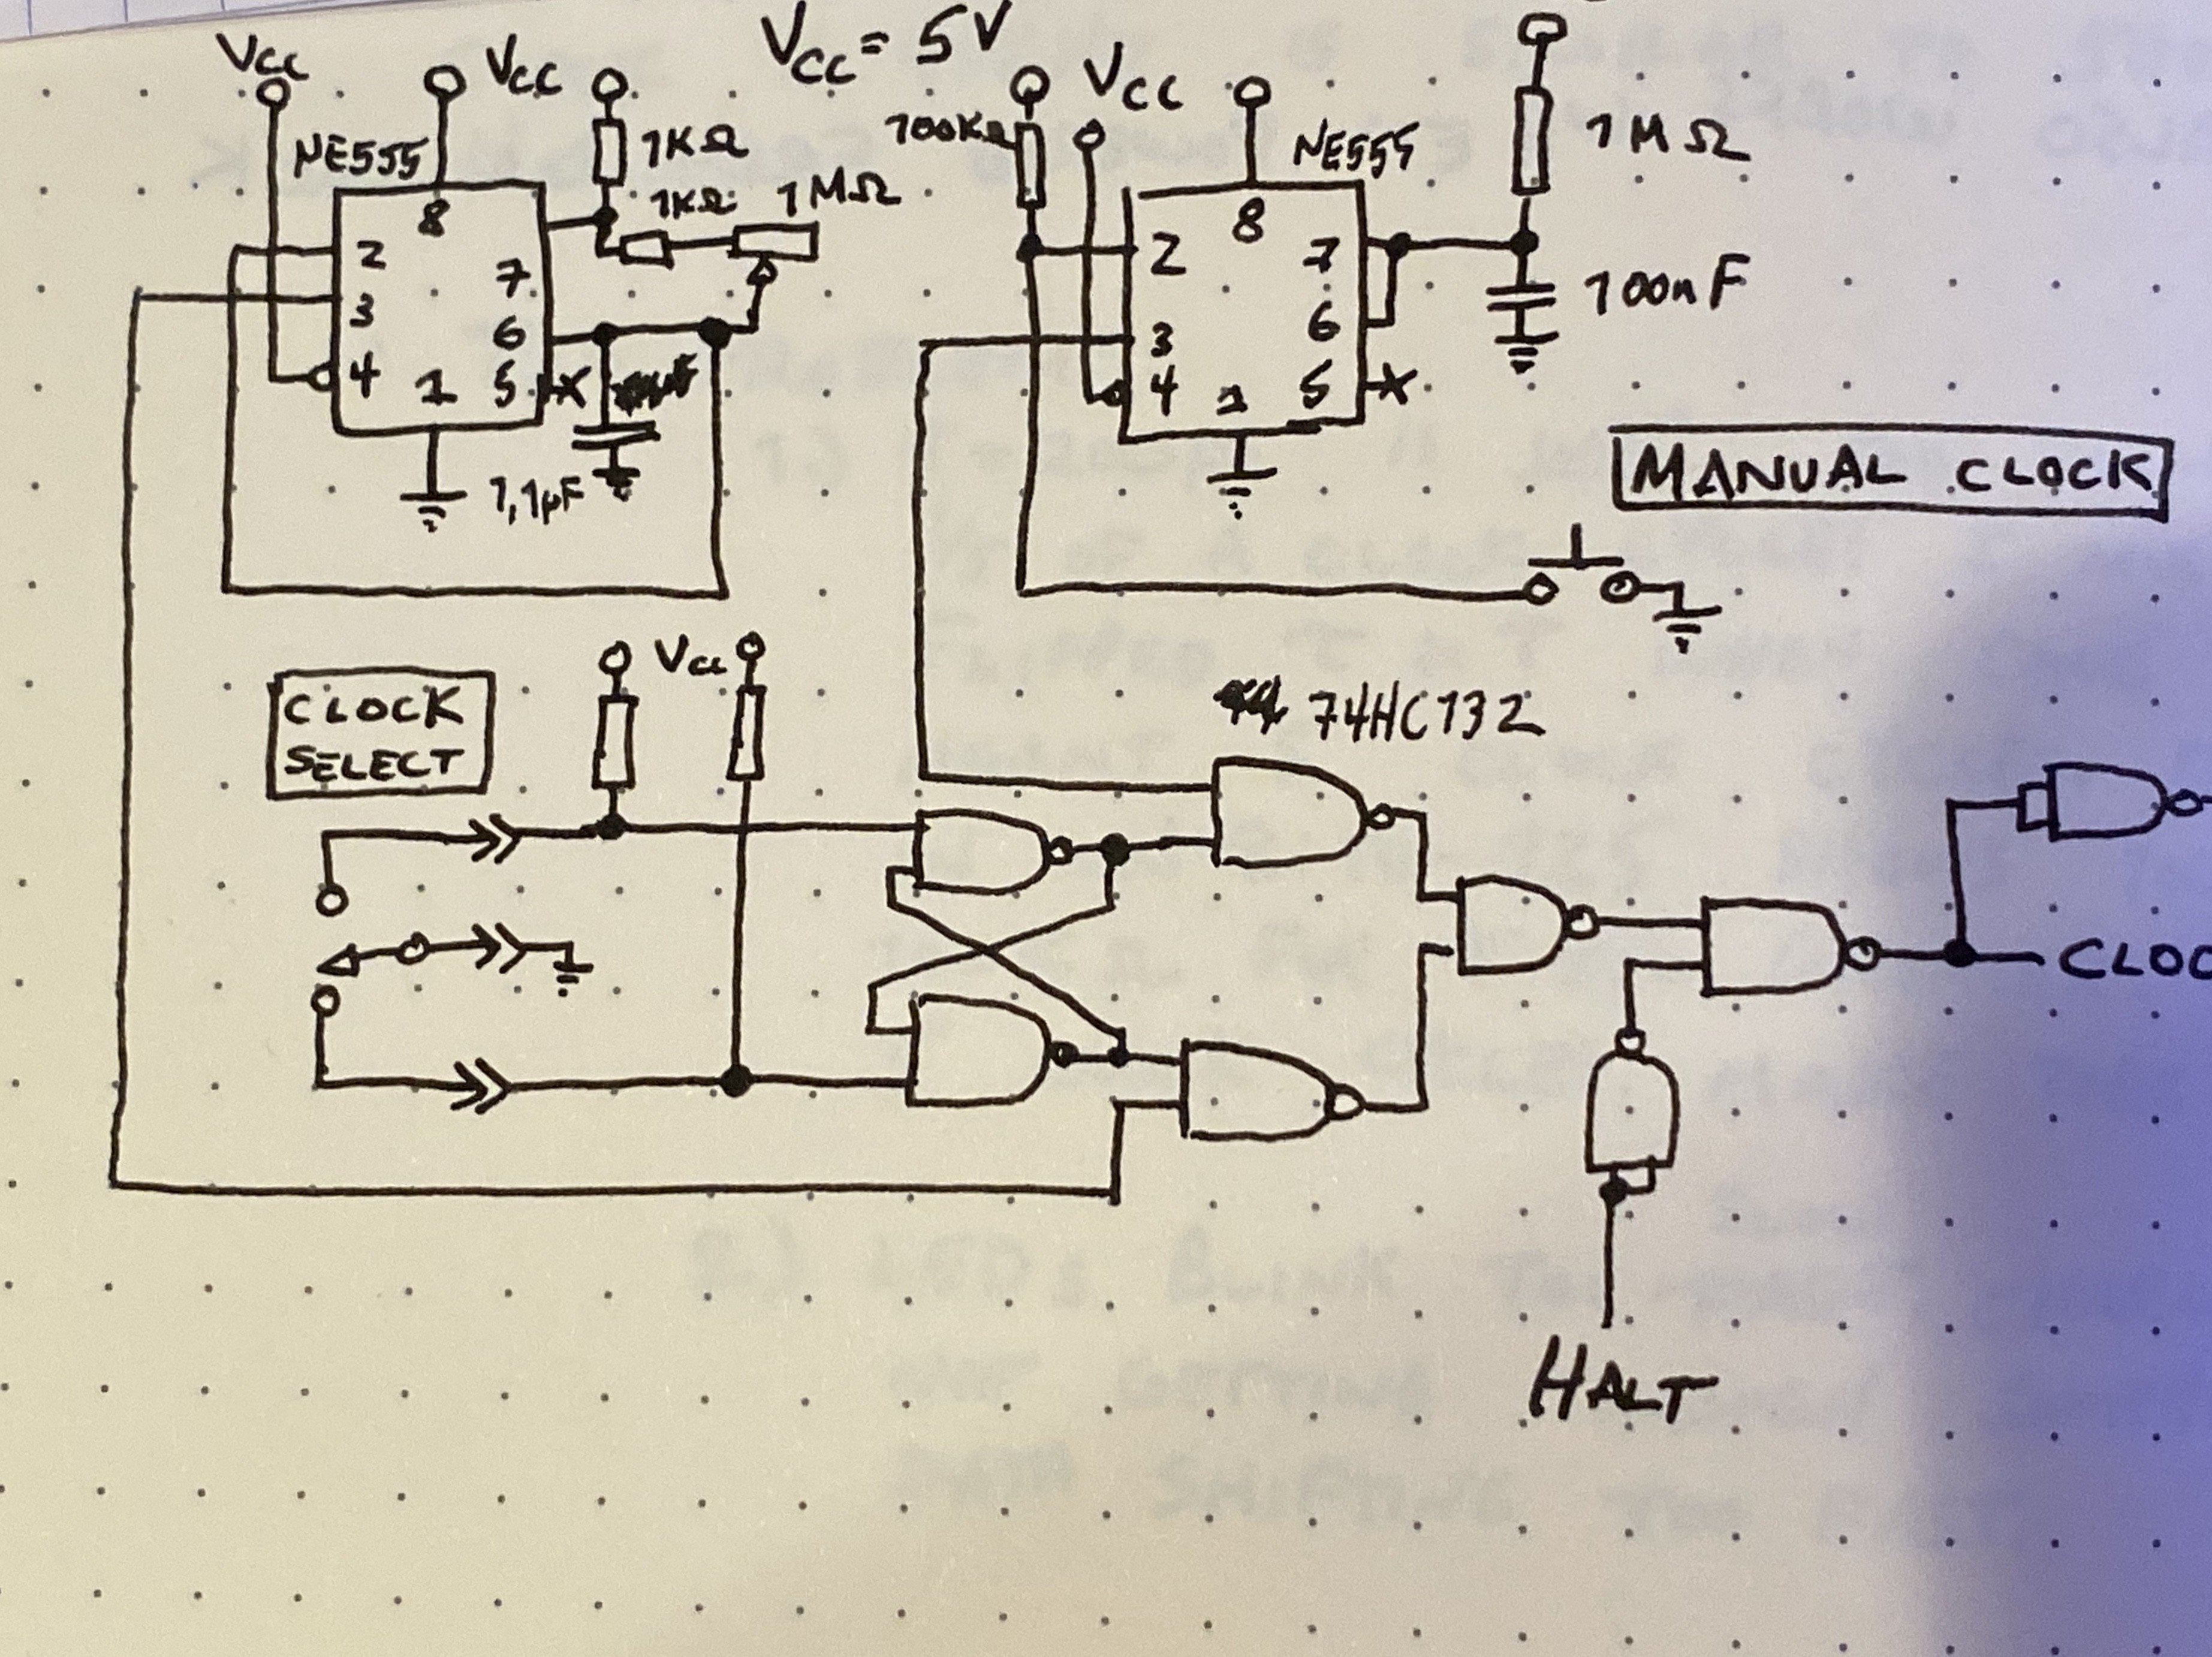 Vcc
Vcc
Vcc = 5V
Vcc
NE555
1KΩ
1KΩ
1MΩ
8
2
3
4
7
6
5
1
1,1µF
100KΩ
NE555
1MΩ
8
2
3
4
7
6
5
1
100nF
MANUAL CLOCK
CLOCK
SELECT
Vcc
74HC132
CLOC
HALT